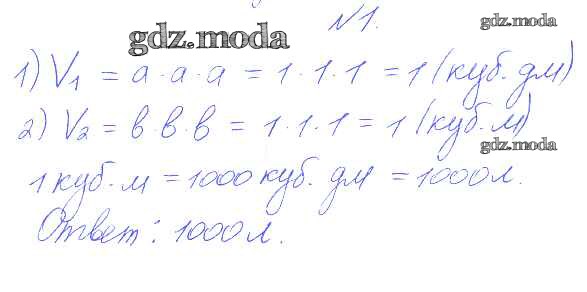 №1.
gdz.moda
gdz.moda
1) V₁ = a · a · a = 1 · 1 · 1 = 1 (куб. дм)
2) V₂ = в · в · в = 1 · 1 · 1 = 1 (куб. м)
gdz.moda
1 куб. м = 1000 куб. дм = 1000 л.
Ответ: 1000 л.